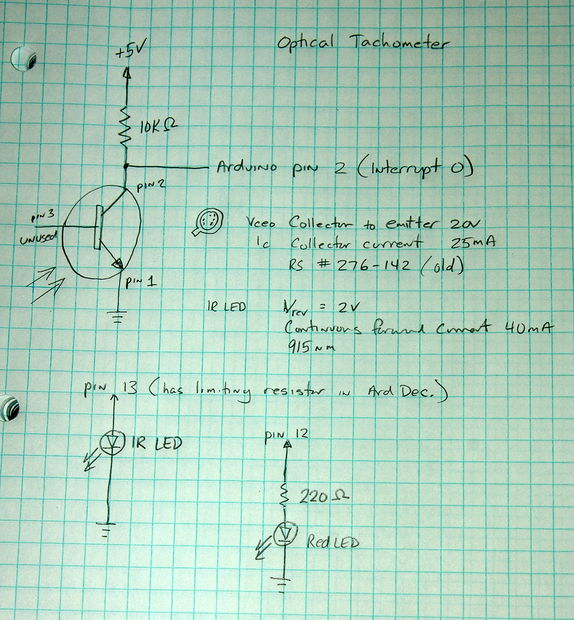 Optical Tachometer
+5V
10KΩ
Arduino pin 2 (Interrupt 0)
pin 2
pin 3
unused
pin 1
Vceo Collector to emitter 20v
Ic Collector current 25mA
RS # 276-142 (old)
IR LED Vrev = 2V
Continuous forward current 40mA
915nm
pin 13 (has limiting resistor in Ard Dec.)
IR LED
pin 12
220Ω
Red LED